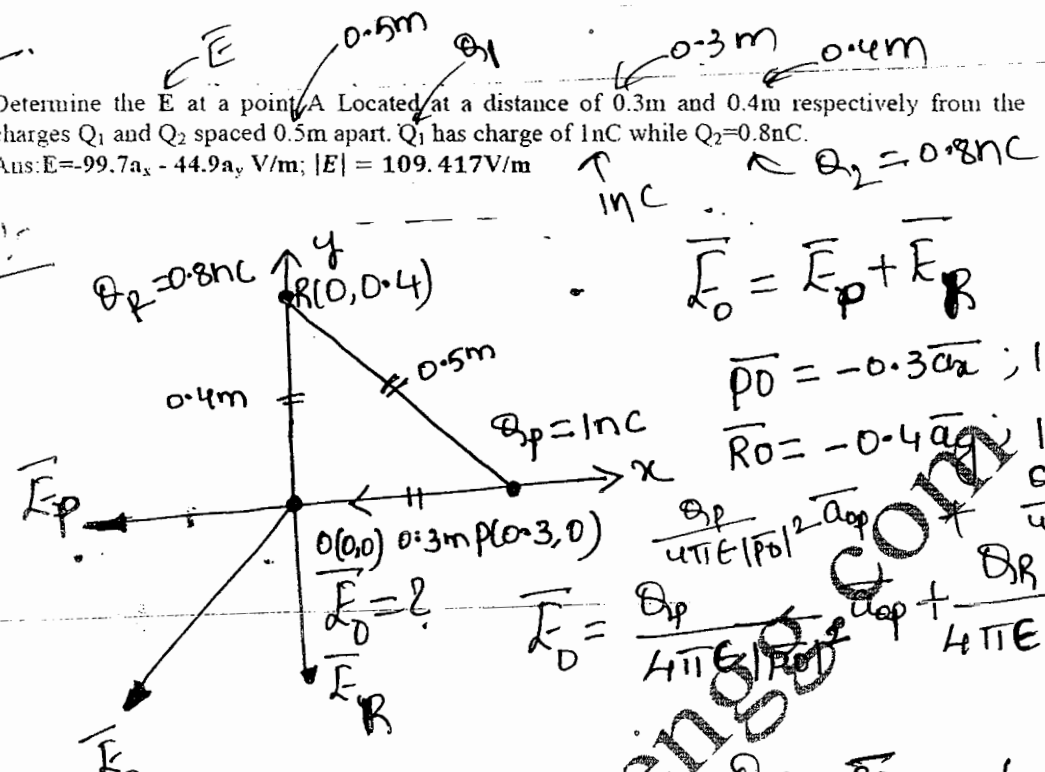 E̅
0.5m
Q1
0.3m
0.4m
Determine the E at a point A Located at a distance of 0.3m and 0.4m respectively from the
charges Q₁ and Q₂ spaced 0.5m apart. Q₁ has charge of 1nC while Q₂=0.8nC.
Ans:E=-99.7aₓ - 44.9aᵧ V/m; |E| = 109.417V/m
1nC
Q₂ = 0.8nC
y
Q_R=0.8nC
R(0,0.4)
E̅₀ = E̅_P + E̅_R
0.5m
P̅O̅ = -0.3a̅x ; |
0.4m
Q_P = 1nC
R̅O̅ = -0.4a̅y ; |
x
E̅_P
O(0,0) 0.3m P(0.3,0)
Q_P/4πϵ|P̅O̅|² a̅op +
E̅₀ = ?
E̅₀ = Q_P/4πϵ|P̅O̅|² a̅op + Q_R/4πϵ
E̅_R